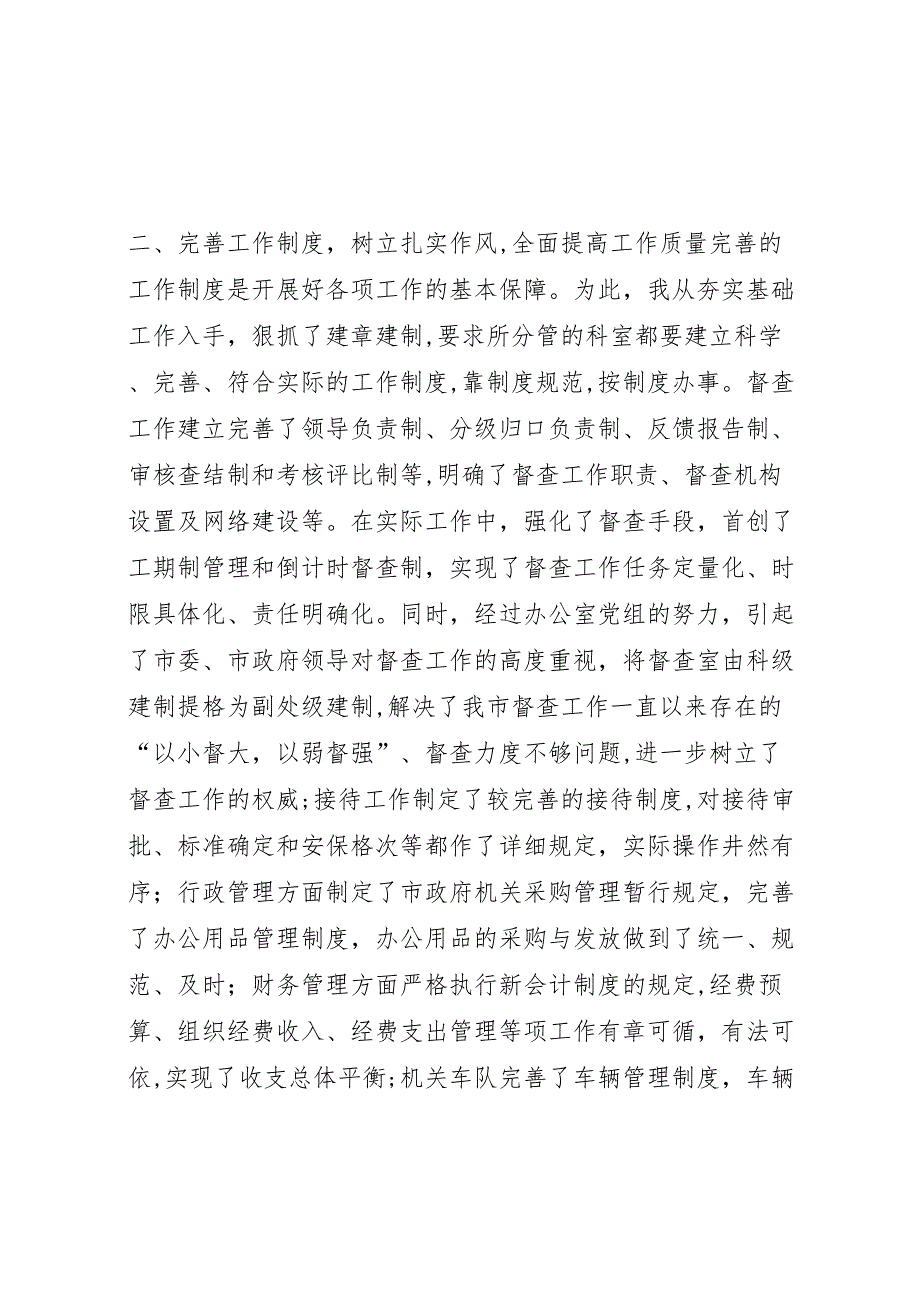 二、完善工作制度，树立扎实作风,全面提高工作质量完善的
工作制度是开展好各项工作的基本保障。为此，我从夯实基础
工作入手，狠抓了建章建制,要求所分管的科室都要建立科学
、完善、符合实际的工作制度,靠制度规范,按制度办事。督查
工作建立完善了领导负责制、分级归口负责制、反馈报告制、
审核查结制和考核评比制等,明确了督查工作职责、督查机构
设置及网络建设等。在实际工作中，强化了督查手段，首创了
工期制管理和倒计时督查制，实现了督查工作任务定量化、时
限具体化、责任明确化。同时，经过办公室党组的努力，引起
了市委、市政府领导对督查工作的高度重视，将督查室由科级
建制提格为副处级建制,解决了我市督查工作一直以来存在的
“以小督大，以弱督强”、督查力度不够问题,进一步树立了
督查工作的权威;接待工作制定了较完善的接待制度,对接待审
批、标准确定和安保格次等都作了详细规定，实际操作井然有
序；行政管理方面制定了市政府机关采购管理暂行规定，完善
了办公用品管理制度，办公用品的采购与发放做到了统一、规
范、及时；财务管理方面严格执行新会计制度的规定,经费预
算、组织经费收入、经费支出管理等项工作有章可循，有法可
依,实现了收支总体平衡;机关车队完善了车辆管理制度，车辆